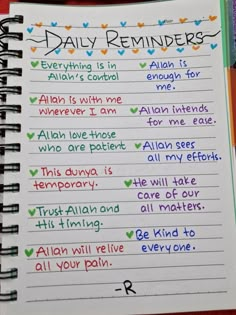 DAILY REMINDERS
Everything is in
Allah's control
Allah is with me
wherever I am
Allah love those
who are patient
This dunya is
temporary.
Trust Allah and
His timing.
Allah will relive
all your pain.
Allah is
enough for
me.
Allah intends
for me ease.
Allah sees
all my efforts.
He will take
care of our
all matters.
Be Kind to
everyone.
-R